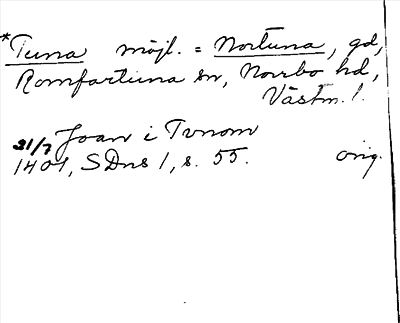 *Tuna möjl. = Nortuna, gd,
Romfartuna sn, Norrbo hd,
Västm. l.
Joan i Tvnom
31/7
1401, SDns 1, s. 55. orig.